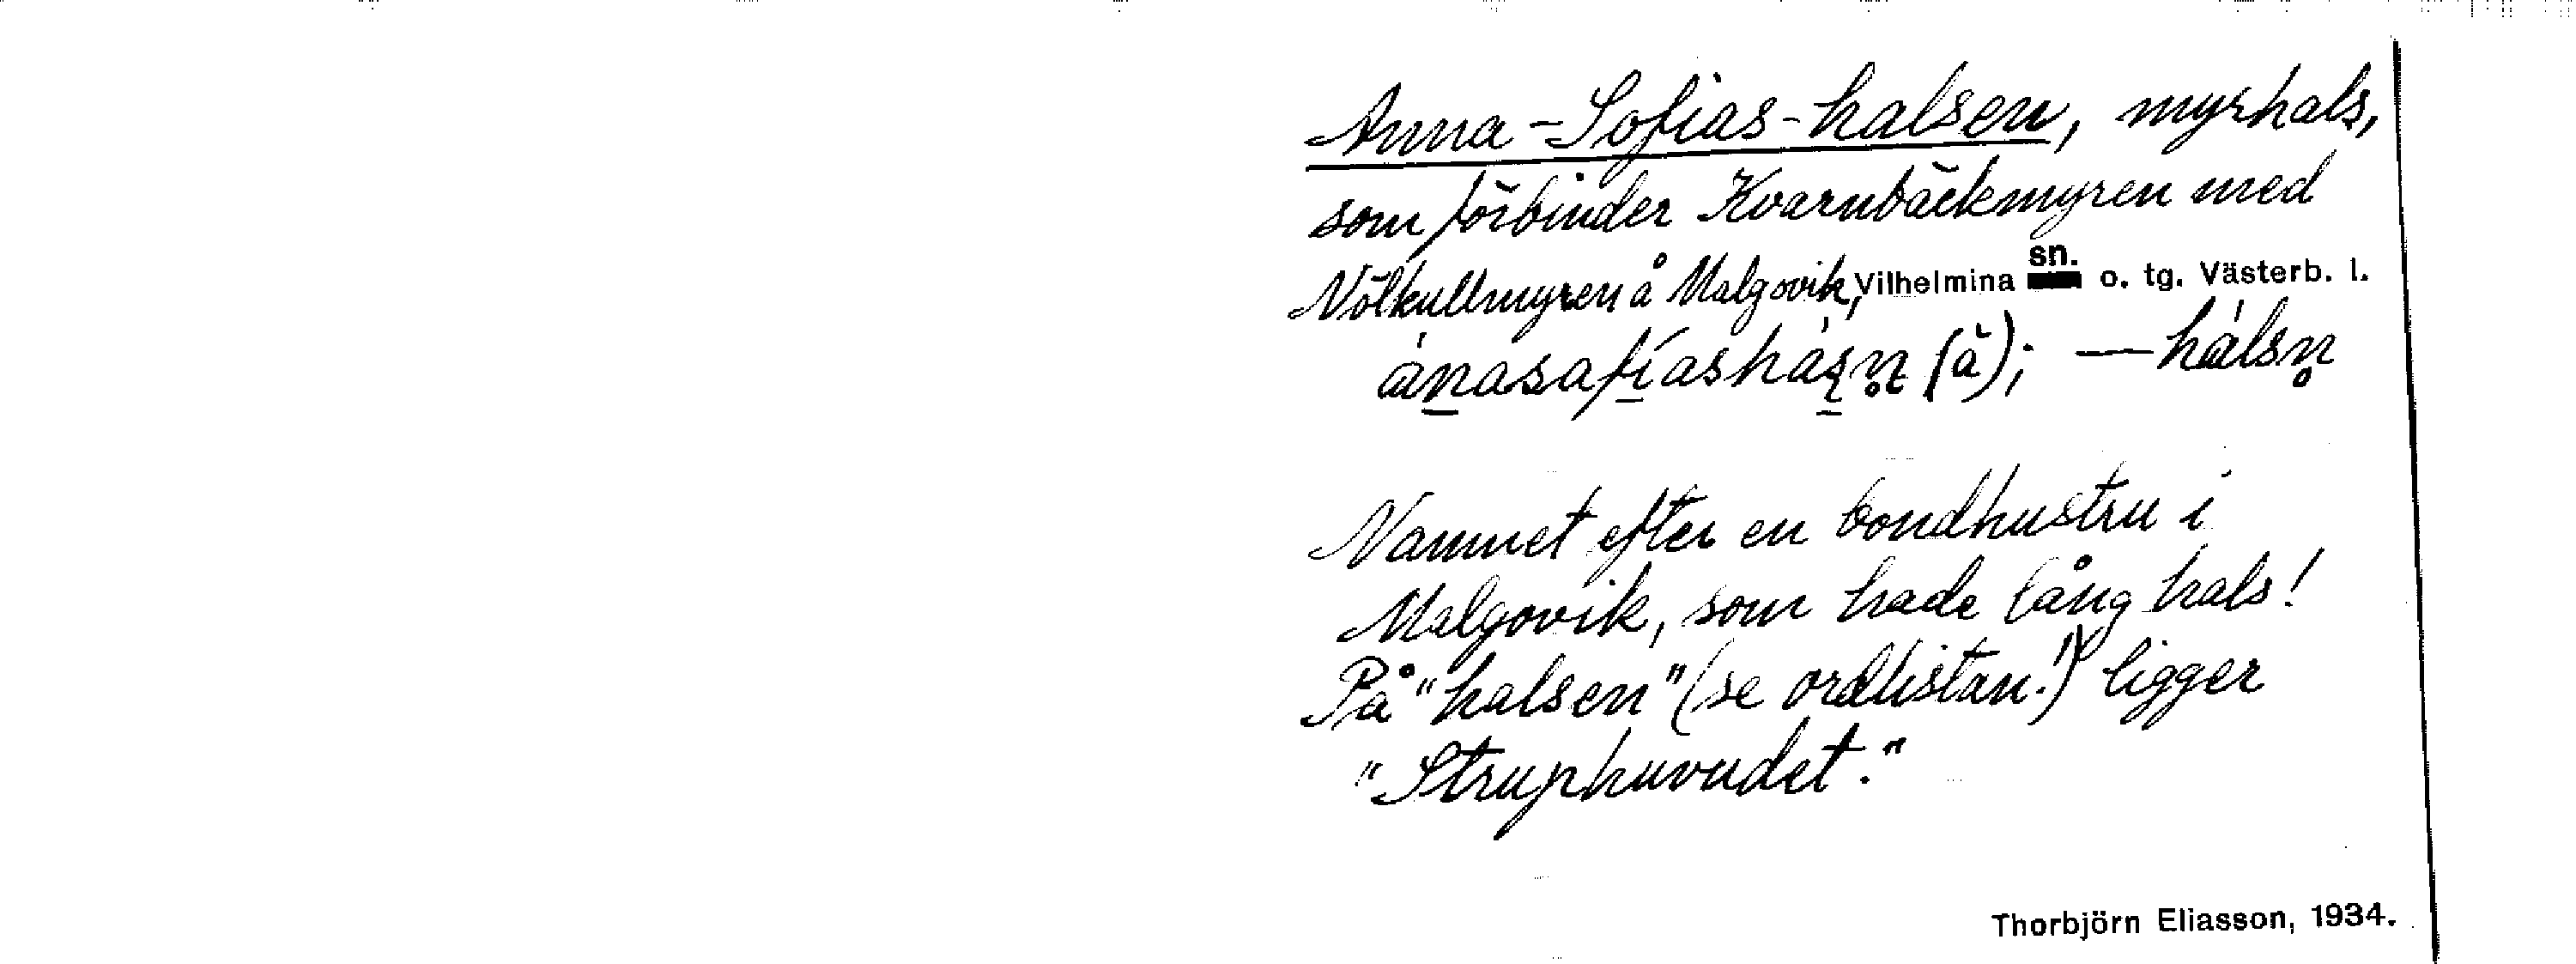 Anna-Sofias-halsen, myrhals,
som förbinder Kvarnbäckmyren med
Nölkullmyren å Malgovik, Vilhelmina sn. o. tg. Västerb. l.
(ă); — hálsn̥
Namnet efter en bondhustru i
Malgovik, som hade lång hals!
På "halsen" (se ordlistan!) ligger
"Struphuvudet."
Thorbjörn Eliasson, 1934.